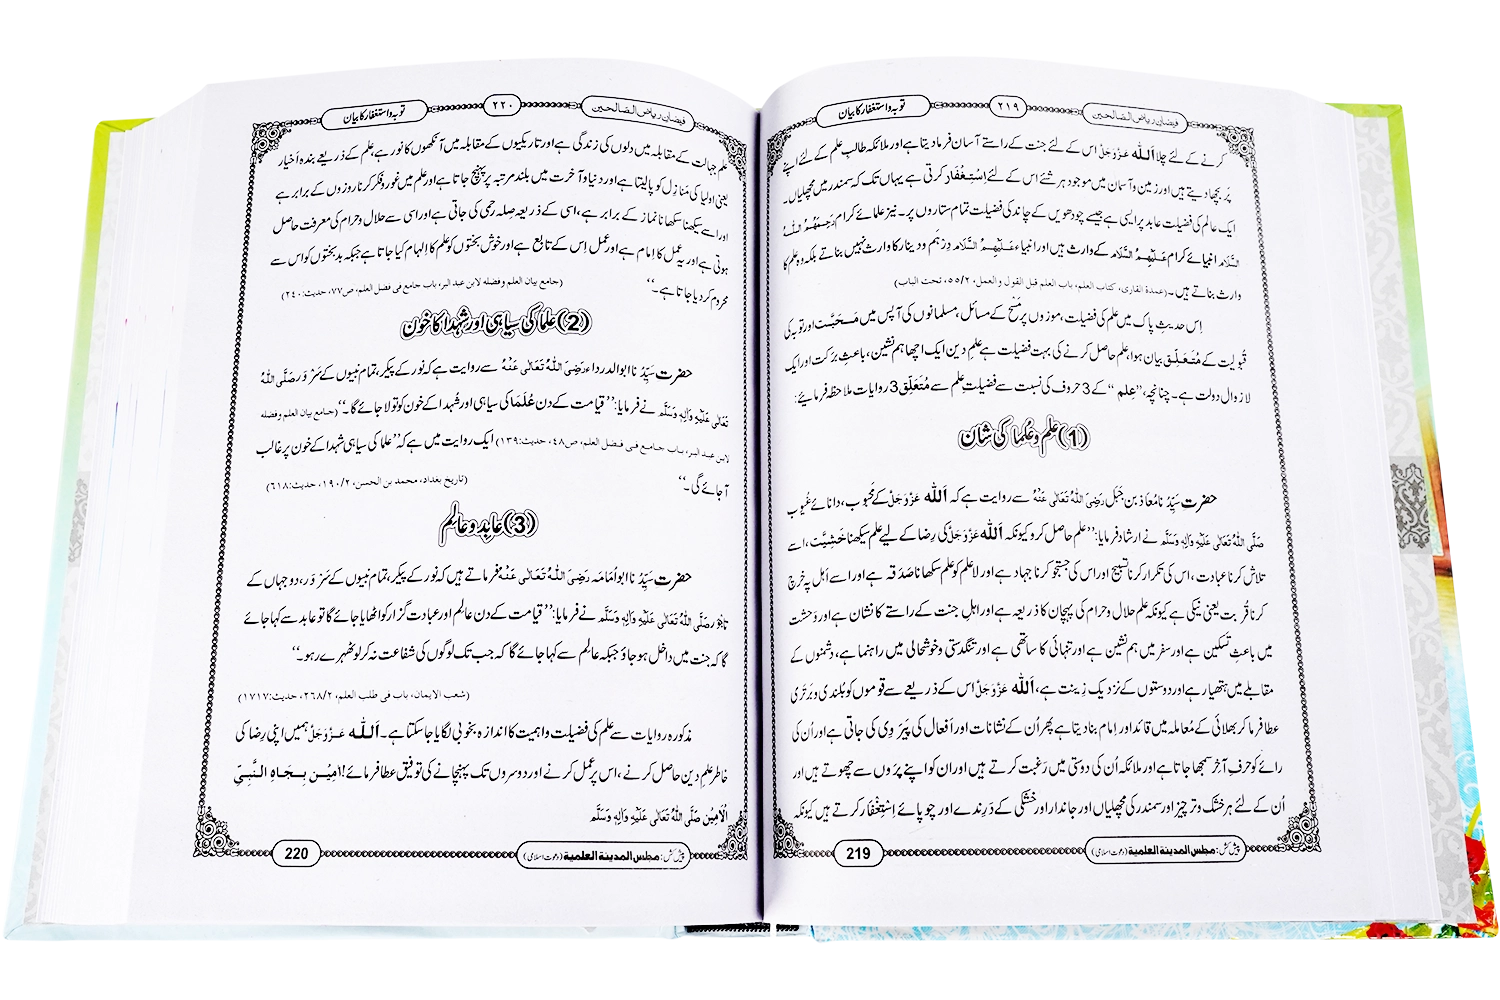 فیضانِ ریاض الصالحین ۲۱۹ توبہ و استغفار کا بیان
کرنے کے لئے چلا اللہ عَزَّوَجَلَّ اس کے لئے جنت کے راستے آسان فرما دیتا ہے اور ملائکہ طالبِ علم کے لئے اپنے
پَر بچھا دیتے ہیں اور زمین و آسمان میں موجود ہر شئے اس کے لئے اِسْتِغْفَار کرتی ہے یہاں تک کہ سمندر میں مچھلیاں۔
ایک عالم کی فضیلت عابد پر ایسی ہے جیسے چودھویں کے چاند کی فضیلت تمام ستاروں پر۔ نیز علمائے کرام رَحِمَهُمُ اللهُ
السَّلَام انبیائے کرام عَلَيْهِمُ السَّلَام کے وارث ہیں اور انبیاء عَلَيْهِمُ السَّلَام دِرْہَم و دینار کا وارث نہیں بناتے بلکہ وہ علم کا
وارث بناتے ہیں۔ (عمدۃ القاری، کتاب العلم، باب العلم قبل القول و العمل، ۲/۵۵، تحت الباب)
اِس حدیثِ پاک میں علم کی فضیلت، موزوں پر مَسْح کے مسائل، مسلمانوں کی آپس میں مَحَبَّت اور توبہ کی
قُبولیت کے مُتَعَلِّق بیان ہوا، علم حاصل کرنے کی بہت فضیلت ہے علمِ دین ایک اچھا ہم نشین، باعثِ برکت اور ایک
لازوال دولت ہے۔ چنانچہ، ”عِلم“ کے 3 حروف کی نسبت سے فضیلتِ عِلم سے مُتَعَلِّق 3 روایات ملاحظہ فرمائیے:
(1) علم و عُلما کی شان
حضرت سَیِّدُنا مُعاذ بن جَبَل رَضِیَ اللهُ تَعَالٰی عَنْهُ سے روایت ہے کہ اللہ عَزَّوَجَلَّ کے مَحبوب، دانائے غُیوب
صَلَّى اللهُ تَعَالٰی عَلَيْهِ وَاٰلِهٖ وَسَلَّم نے ارشاد فرمایا: ”علم حاصل کرو کیونکہ اللہ عَزَّوَجَلَّ کی رضا کے لیے علم سیکھنا خَشِیَّت، اسے
تلاش کرنا عبادت، اس کی تکرار کرنا تسبیح اور اس کی جستجو کرنا جہاد ہے اور لاعلم کو علم سکھانا صَدَقہ ہے اور اسے اَہل پہ خرچ
کرنا قُربت یعنی نیکی ہے کیونکہ علم حلال و حرام کی پہچان کا ذریعہ ہے اور اہلِ جنت کے راستے کا نشان ہے اور وَحشت
میں باعثِ تسکین ہے اور سفر میں ہم نشین ہے اور تنہائی کا ساتھی ہے اور تنگدستی و خوشحالی میں راہنما ہے، دشمنوں کے
مقابلے میں ہتھیار ہے اور دوستوں کے نزدیک زِینت ہے، اللہ عَزَّوَجَلَّ اس کے ذریعے سے قوموں کو بُلندی و بَرتَری
عطا فرما کر بھلائی کے مُعاملہ میں قائد اور اِمام بنا دیتا ہے پھر اُن کے نشانات اور اَفعال کی پَیرَوی کی جاتی ہے اور اُن کی
رائے کو حرفِ آخِر سمجھا جاتا ہے اور ملائکہ اُن کی دوستی میں رَغبت کرتے ہیں اور ان کو اپنے پَروں سے چھوتے ہیں اور
اُن کے لئے ہر خشک و تَر چیز اور سمندر کی مچھلیاں اور جاندار اور خشکی کے دَرِندے اور چوپائے اِسْتِغْفار کرتے ہیں کیونکہ
پیش کش: مجلس المدینۃ العلمیۃ (دعوتِ اسلامی) 219
فیضانِ ریاض الصالحین ۲۲۰ توبہ و استغفار کا بیان
علم جہالت کے مقابلہ میں دلوں کی زندگی ہے اور تاریکیوں کے مقابلہ میں آنکھوں کا نور ہے، علم کے ذریعے بندہ اَخیار
یعنی اولیا کی مَنازِل کو پا لیتا ہے اور دنیا و آخرت میں بلند مرتبہ پر پہنچ جاتا ہے اور علم میں غور و فکر کرنا روزوں کے برابر ہے
اور اسے سیکھنا سکھانا نماز کے برابر ہے، اسی کے ذریعہ صِلہ رحمی کی جاتی ہے اور اسی سے حلال و حرام کی معرفت حاصل
ہوتی ہے اور یہ عمل کا اِمام ہے اور عمل اِس کے تابع ہے اور خوش بختوں کو عِلم کا اِلہام کیا جاتا ہے جبکہ بدبختوں کو اس سے
محروم کر دیا جاتا ہے۔“ (جامع بیان العلم و فضله لابن عبد البر، باب جامع فی فضل العلم، ص۷۷، حدیث: ۲۴۰)
(2) علما کی سیاہی اور شہدا کا خون
حضرت سَیِّدُنا ابوالدرداء رَضِیَ اللهُ تَعَالٰی عَنْهُ سے روایت ہے کہ نور کے پیکر، تمام نبیوں کے سَرْوَر صَلَّى اللهُ
تَعَالٰی عَلَيْهِ وَاٰلِهٖ وَسَلَّم نے فرمایا: ”قیامت کے دن عُلَمَا کی سیاہی اور شُہدا کے خون کو تولا جائے گا۔“ (جامع بیان العلم و فضله
لابن عبد البر، باب جامع فی فضل العلم، ص۴۸، حدیث:۱۳۹) ایک روایت میں ہے کہ ”علما کی سیاہی شہدا کے خون پر غالب
آجائے گی۔“ (تاریخ بغداد، محمد بن الحسن، ۲/۱۹۰، حدیث:۶۱۸)
(3) عابد و عالِم
حضرت سَیِّدُنا ابواُمامَہ رَضِیَ اللهُ تَعَالٰی عَنْهُ فرماتے ہیں کہ نور کے پیکر، تمام نبیوں کے سَرْوَر، دو جہاں کے
تاجْوَر صَلَّى اللهُ تَعَالٰی عَلَيْهِ وَاٰلِهٖ وَسَلَّم نے فرمایا: ”قیامت کے دن عالِم اور عبادت گزار کو اٹھایا جائے گا تو عابد سے کہا جائے
گا کہ جنت میں داخل ہو جاؤ جبکہ عالِم سے کہا جائے گا کہ جب تک لوگوں کی شفاعت نہ کر لو ٹھہرے رہو۔“
(شعب الایمان، باب فی طلب العلم، ۲/۲۶۸، حدیث:۱۷۱۷)
مذکورہ روایات سے علم کی فضیلت و اہمیت کا اندازہ بخوبی لگایا جا سکتا ہے۔ اللہ عَزَّوَجَلَّ ہمیں اپنی رضا کی
خاطر علمِ دین حاصل کرنے، اس پر عمل کرنے اور دوسروں تک پہنچانے کی توفیق عطا فرمائے! اٰمِيْن بِجَاهِ النَّبِيِّ
الْاَمِيْن صَلَّى اللهُ تَعَالٰی عَلَيْهِ وَاٰلِهٖ وَسَلَّم
پیش کش: مجلس المدینۃ العلمیۃ (دعوتِ اسلامی) 220